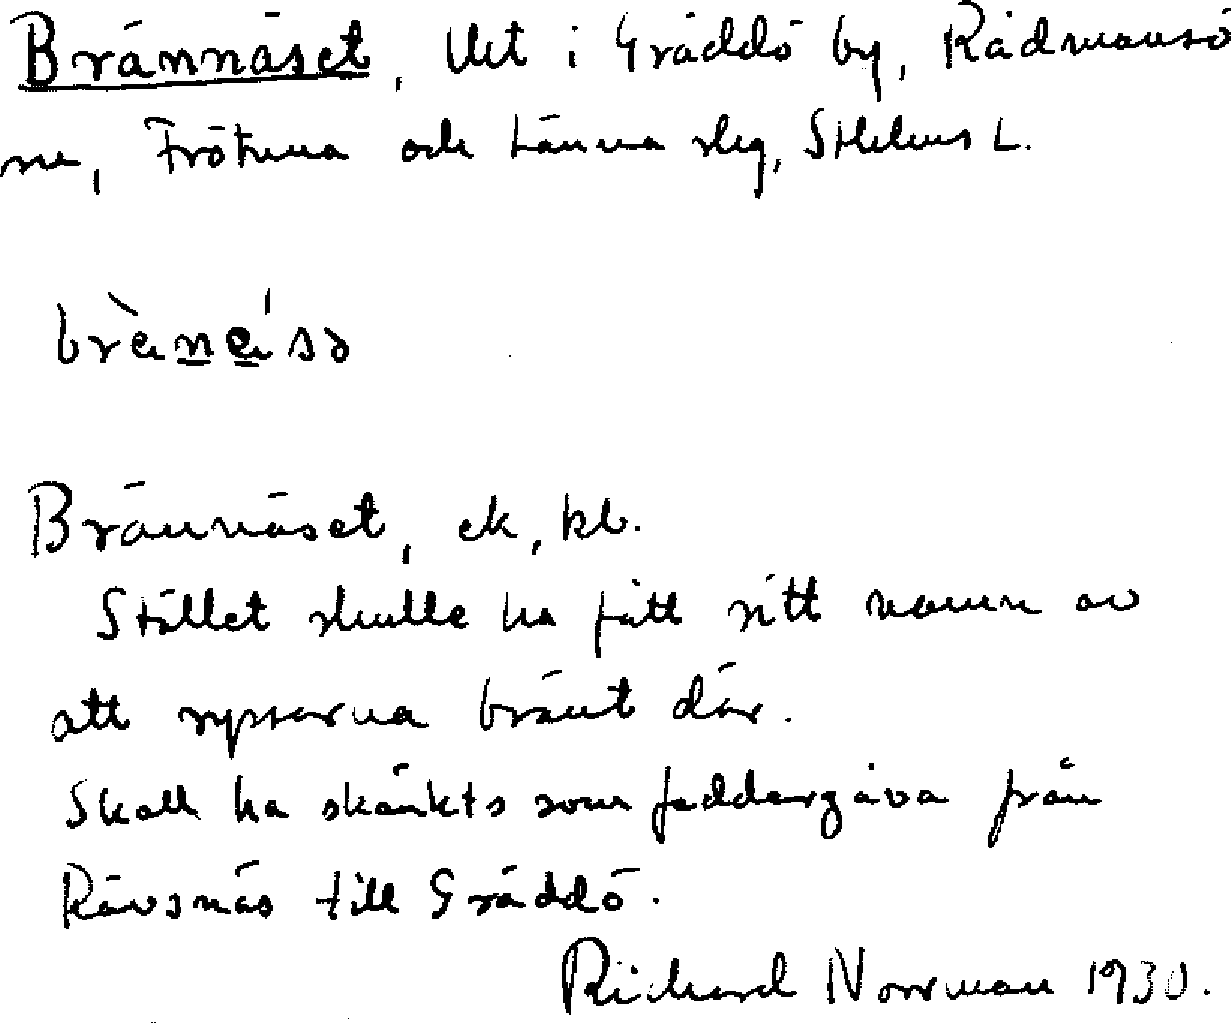 Brännäset, Utt i Gräddö by, Rådmansö
sn, Frötuna och Länna slg, Sthlms L.
brä̀nä́sə
Brännäset, ek, kb.
Stället skulle ha fått sitt namn av
att ryssarna bränt där.
Skall ha skänkts som faddergåva från
Rävsnäs till Gräddö.
Richard Norrman 1930.